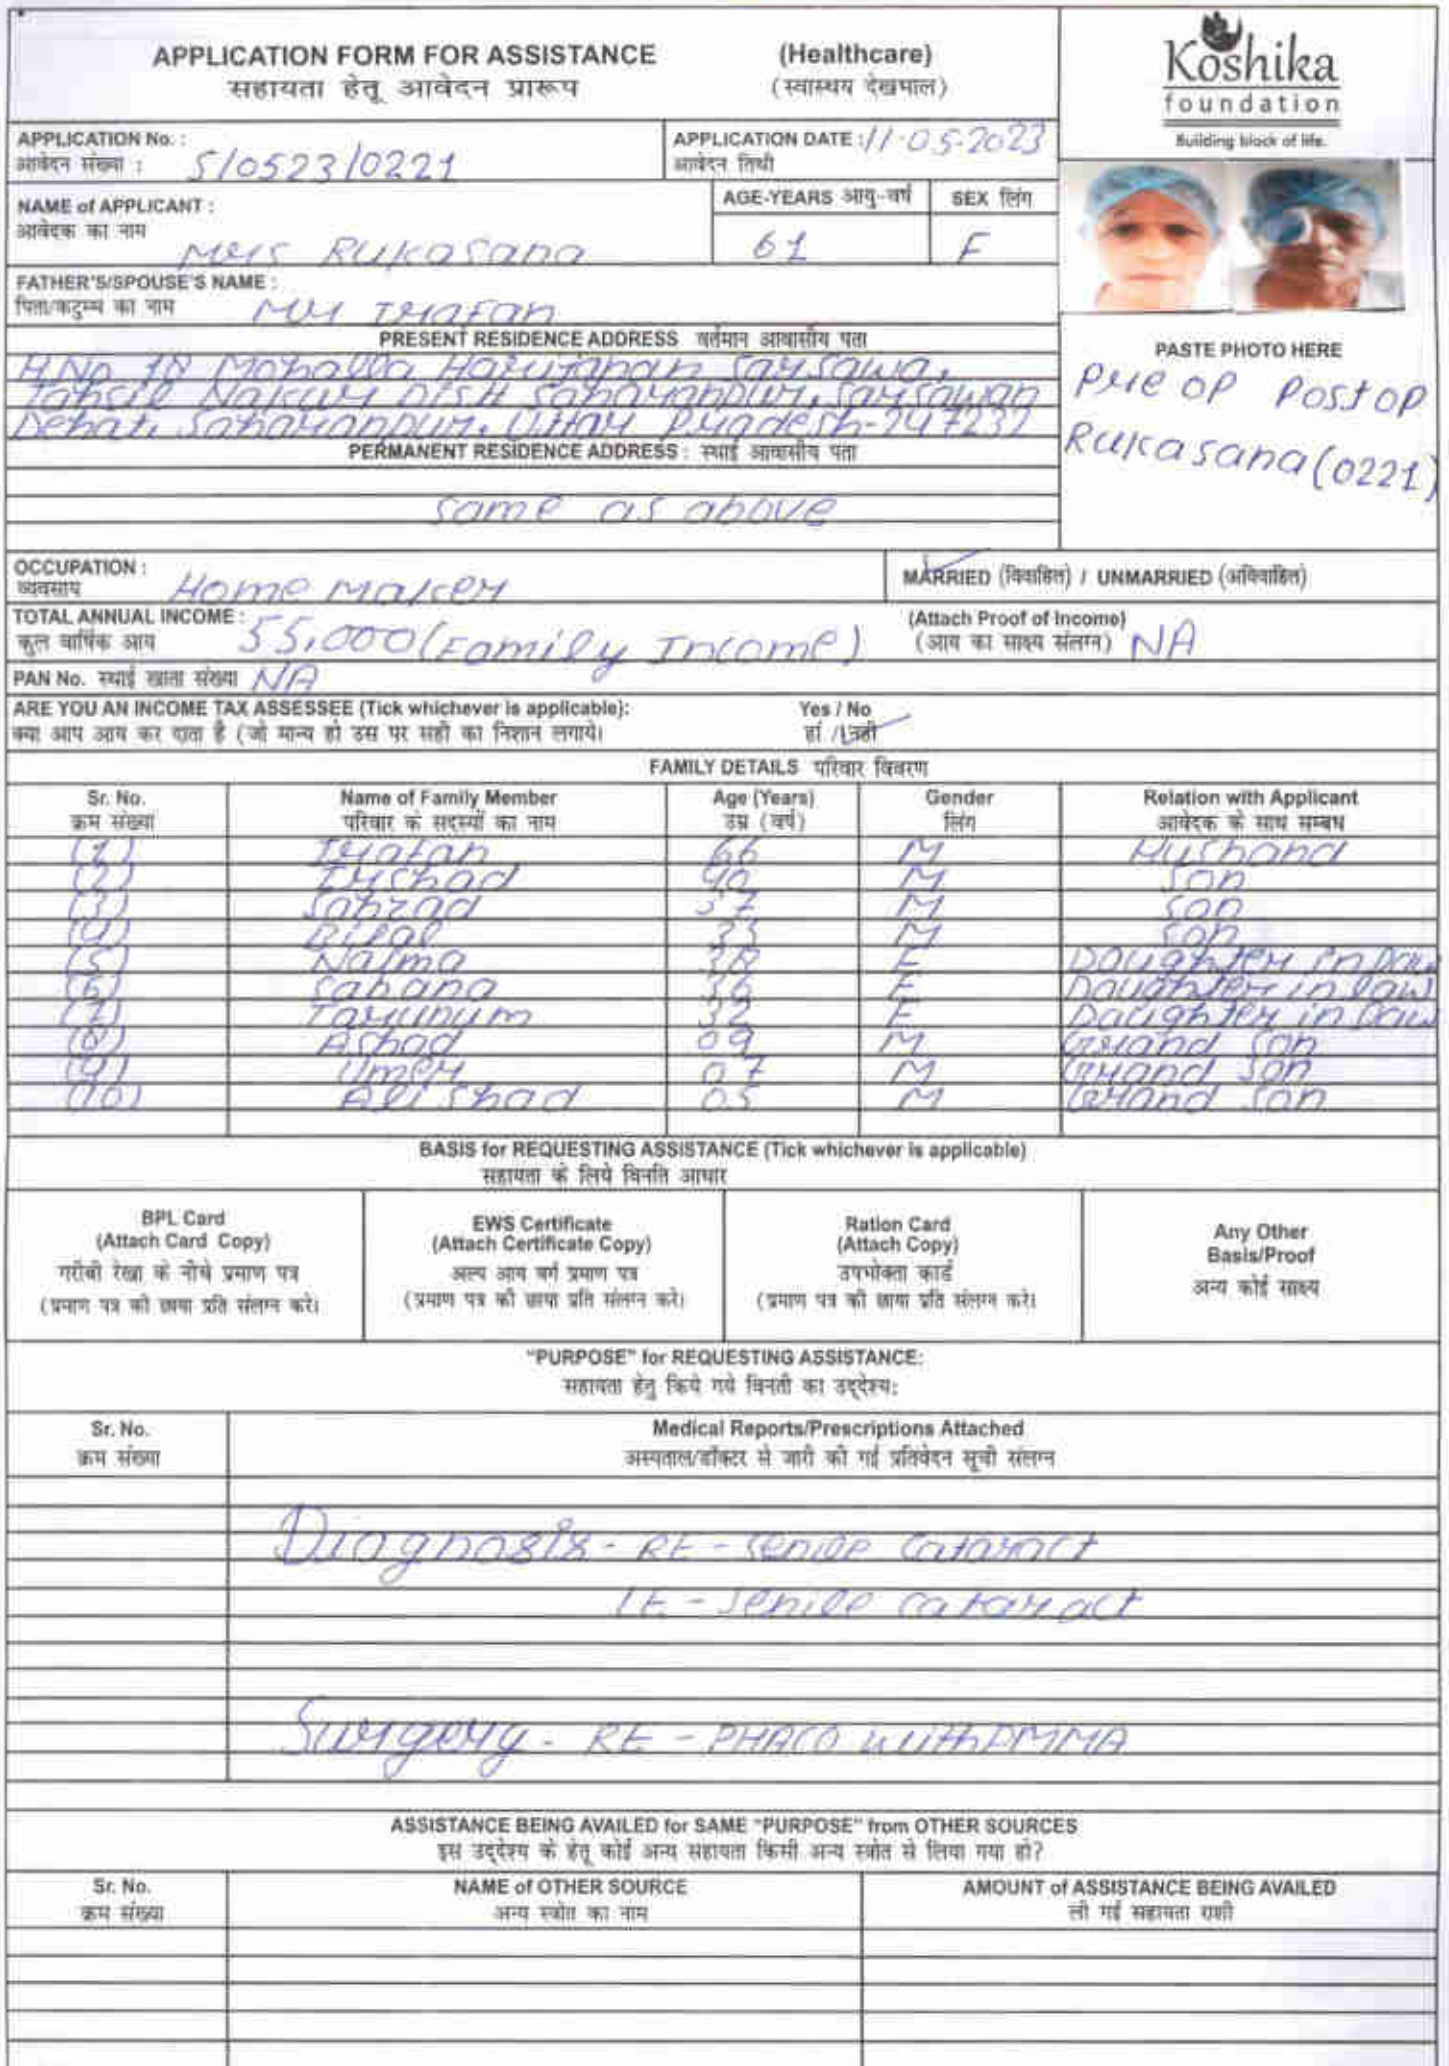 APPLICATION FORM FOR ASSISTANCE (Healthcare)
सहायता हेतू आवेदन प्रारूप (स्वास्थय देखभाल)
Koshika
foundation
Building block of life.
APPLICATION No. : S/0523/0221
आवेदन संख्या :
APPLICATION DATE : 11-05-2023
आवेदन तिथी
NAME of APPLICANT :
आवेदक का नाम
Mrs Rukasana
AGE-YEARS आयु-वर्ष
61
SEX लिंग
F
FATHER'S/SPOUSE'S NAME :
पिता/कटुम्ब का नाम
Mr Irafan
PRESENT RESIDENCE ADDRESS वर्तमान आवासीय पता
H.No 18 Mohalla Harijanan Sarsawa,
Tahsil Nakur Distt Saharanpur, Sarsawan
Dehat, Saharanpur, Uttar Pradesh-247232
PERMANENT RESIDENCE ADDRESS : स्थाई आवासीय पता
same as above
PASTE PHOTO HERE
Pre op Post op
Rukasana (0221)
OCCUPATION : Home maker
व्यवसाय
MARRIED (विवाहित) / UNMARRIED (अविवाहित)
TOTAL ANNUAL INCOME : 55,000 (Family Income)
कुल वार्षिक आय
(Attach Proof of Income)
(आय का साक्ष्य संलग्न) NA
PAN No. स्थाई खाता संख्या NA
ARE YOU AN INCOME TAX ASSESSEE (Tick whichever is applicable): Yes / No
क्या आप आय कर दाता है (जो मान्य हो उस पर सही का निशान लगाये। हां / नही
FAMILY DETAILS परिवार विवरण
Sr. No. Name of Family Member Age (Years) Gender Relation with Applicant
क्रम संख्या परिवार के सदस्यों का नाम उम्र (वर्ष) लिंग आवेदक के साथ सम्बध
(1) Irafan 66 M Husband
(2) Irshad 40 M Son
(3) Sahzad 37 M Son
(4) Bilal M Son
(5) Naima 38 F Daughter in law
(6) Sabana 36 F Daughter in law
(7) Tarunum 32 F Daughter in law
(8) Ashad 09 M Grand Son
(9) Umer 07 M Grand Son
(10) Ali Shad 05 M Grand Son
BASIS for REQUESTING ASSISTANCE (Tick whichever is applicable)
सहायता के लिये विनति आधार
BPL Card
(Attach Card Copy)
गरीबी रेखा के नीचे प्रमाण पत्र
(प्रमाण पत्र की छाया प्रति संलग्न करे।
EWS Certificate
(Attach Certificate Copy)
अल्प आय वर्ग प्रमाण पत्र
(प्रमाण पत्र की छाया प्रति संलग्न करे।
Ration Card
(Attach Copy)
उपभोक्ता कार्ड
(प्रमाण पत्र की छाया प्रति संलग्न करे।
Any Other
Basis/Proof
अन्य कोई साक्ष्य
"PURPOSE" for REQUESTING ASSISTANCE:
सहायता हेतु किये गये विनती का उद्देश्य:
Sr. No. Medical Reports/Prescriptions Attached
क्रम संख्या अस्पताल/डॉक्टर से जारी की गई प्रतिवेदन सूची संलग्न
Diagnosis - RE - Senile Cataract
LE - Senile Cataract
Surgery - RE - PHACO with PMMA
ASSISTANCE BEING AVAILED for SAME "PURPOSE" from OTHER SOURCES
इस उद्देश्य के हेतू कोई अन्य सहायता किसी अन्य स्त्रोत से लिया गया हो?
Sr. No. NAME of OTHER SOURCE AMOUNT of ASSISTANCE BEING AVAILED
क्रम संख्या अन्य स्त्रोत का नाम ली गई सहायता राशी